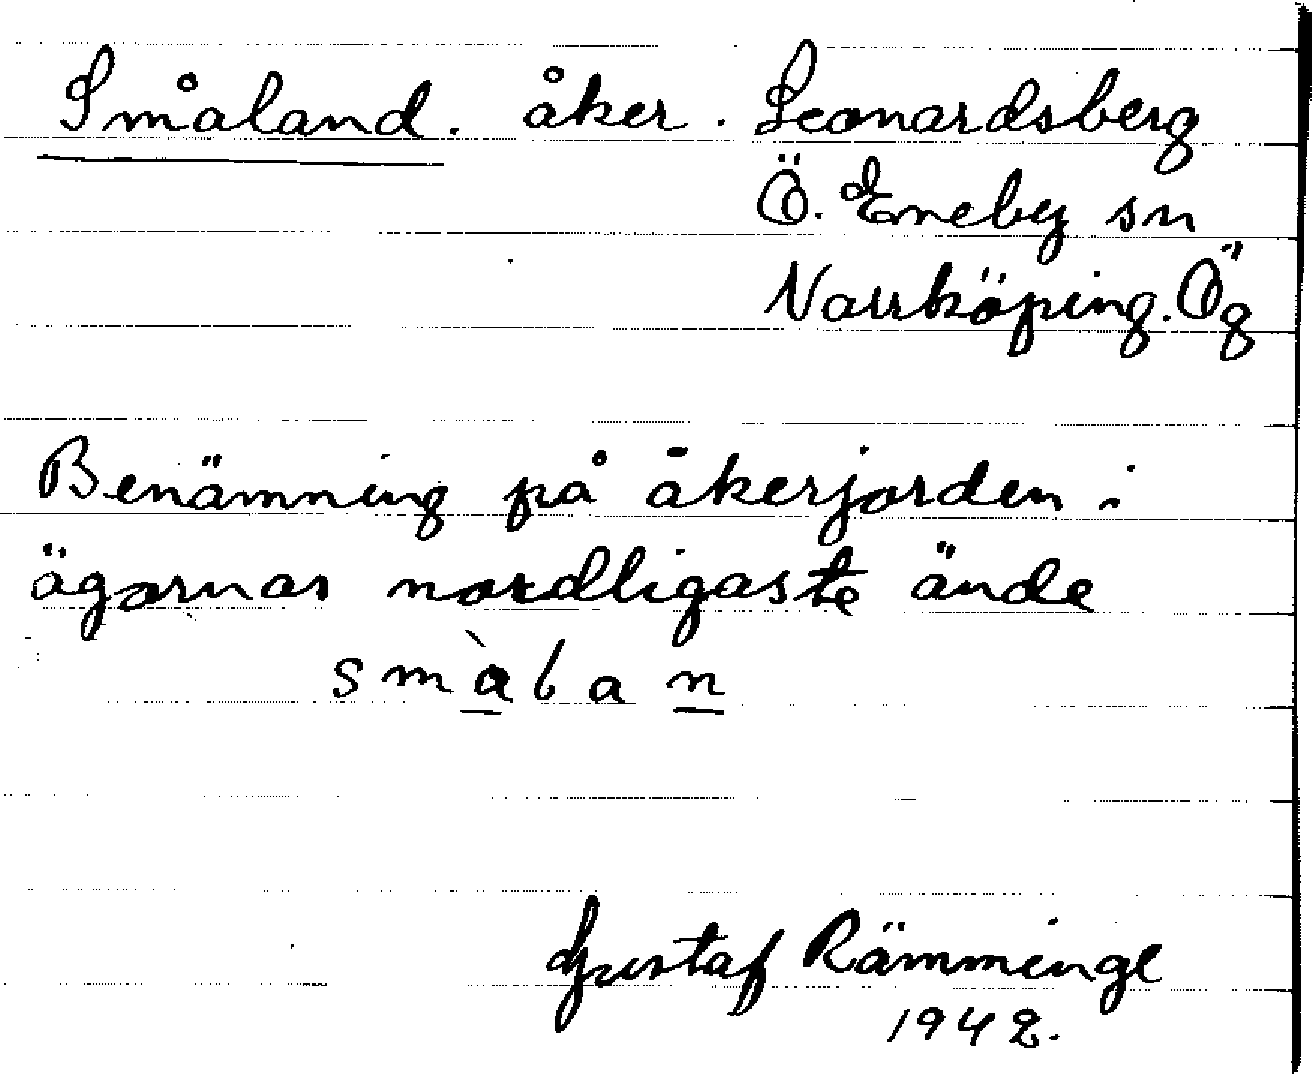 Småland. åker. Leonardsberg
Ö. Eneby sn
Norrköping. Ög
Benämning på åkerjorden i
ägornas nordligaste ände
smàlan
Gustaf Rämminge
1942.